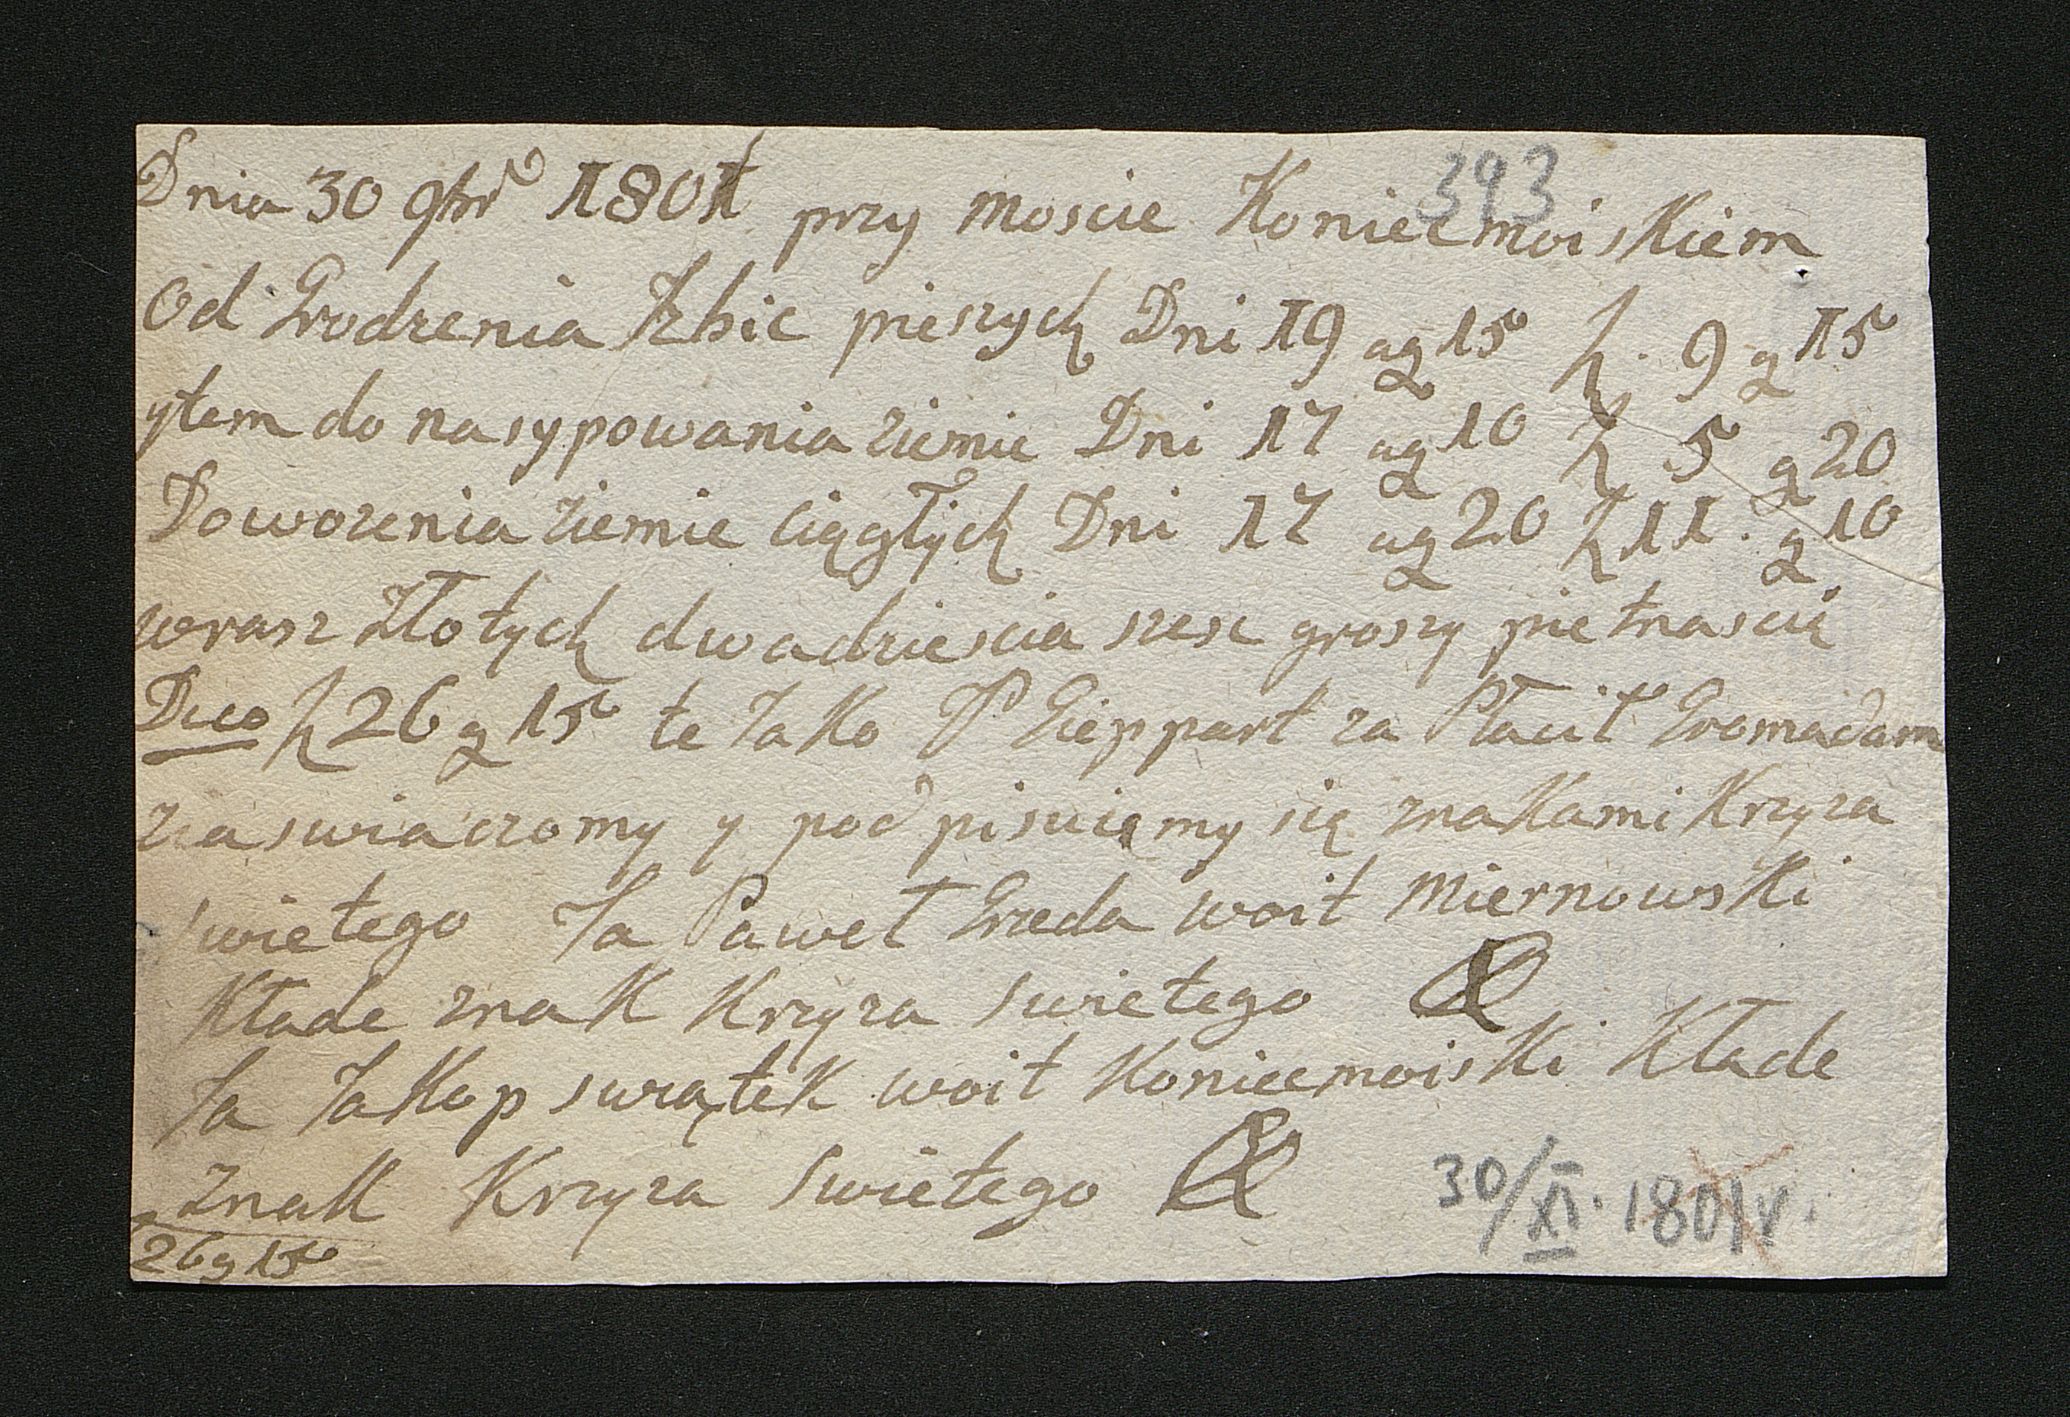 393
Dnia 30 9br 1801 przy moscie Koniecmoiskiem
Od Grodzenia Jzbic pieszych Dni 19 ag 15 zł. 9 g 15
ytem do nasypowania ziemie Dni 17 ag 10 zł 5 g 20
Dowozenia ziemie ciągłych Dni 17 ag 20 zł 11. g 10
wrasz złotych dwadziescia szesc groszy pietnascie
Dico zł 26 g 15 te Jako P Gieppart za Płacił Gromadam
za swiadczomy y pod pisuiemy się znakami Krzyza
Swietego Ja Paweł Grzeda woit Miernowski
Kłade znak Krzyza Swietego
Ja Jakop swiątek woit Koniecmoiski Kłade
znak Krzyza Swietego
26 g 15
30/XI. 1801 r.